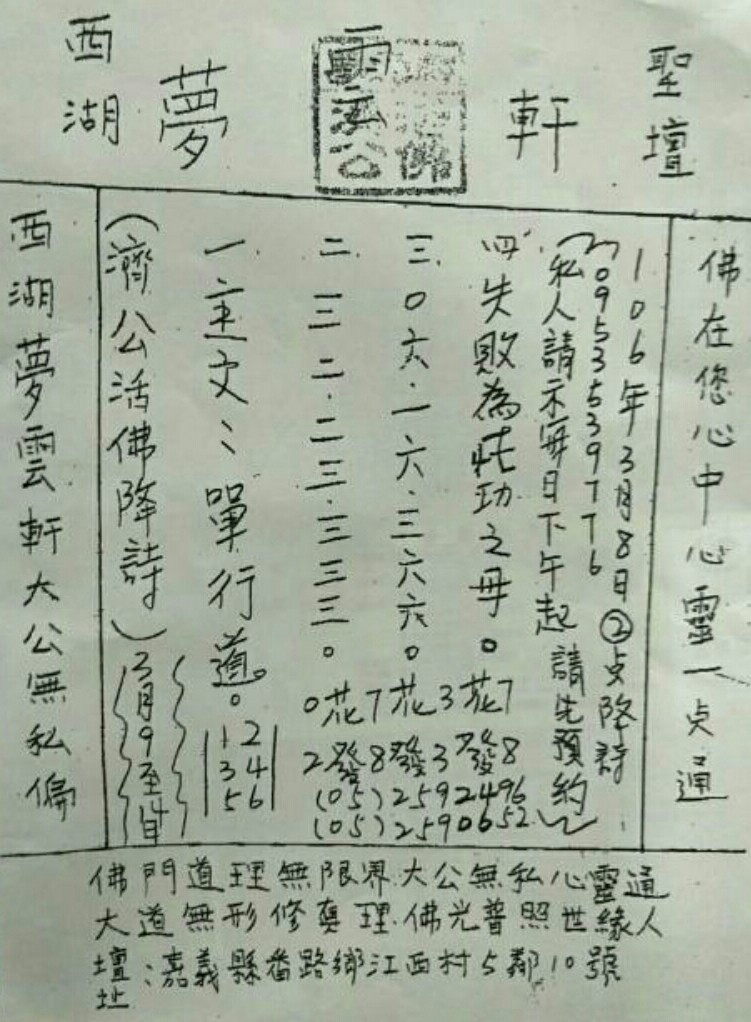 聖壇
軒
夢
西湖
佛在您心中心靈一点通
106年3月8日②点降詩
0953539776
(私人請示每日下午起 請先預約)
四失敗為成功之母。
三.0六.一六.三六六。
二三二.二三.三三三。
一主文:單行道。
(濟公活佛降詩)
3月9至
12
34
56
0花7花3花7
2發8發3發8
(05)2592496
(05)2590652
西湖夢雲軒大公無私偏
佛門道理無限界大公無私心靈通
大道無形修真理.佛光普照世緣人
壇址:嘉義縣番路鄉江西村5鄰10號